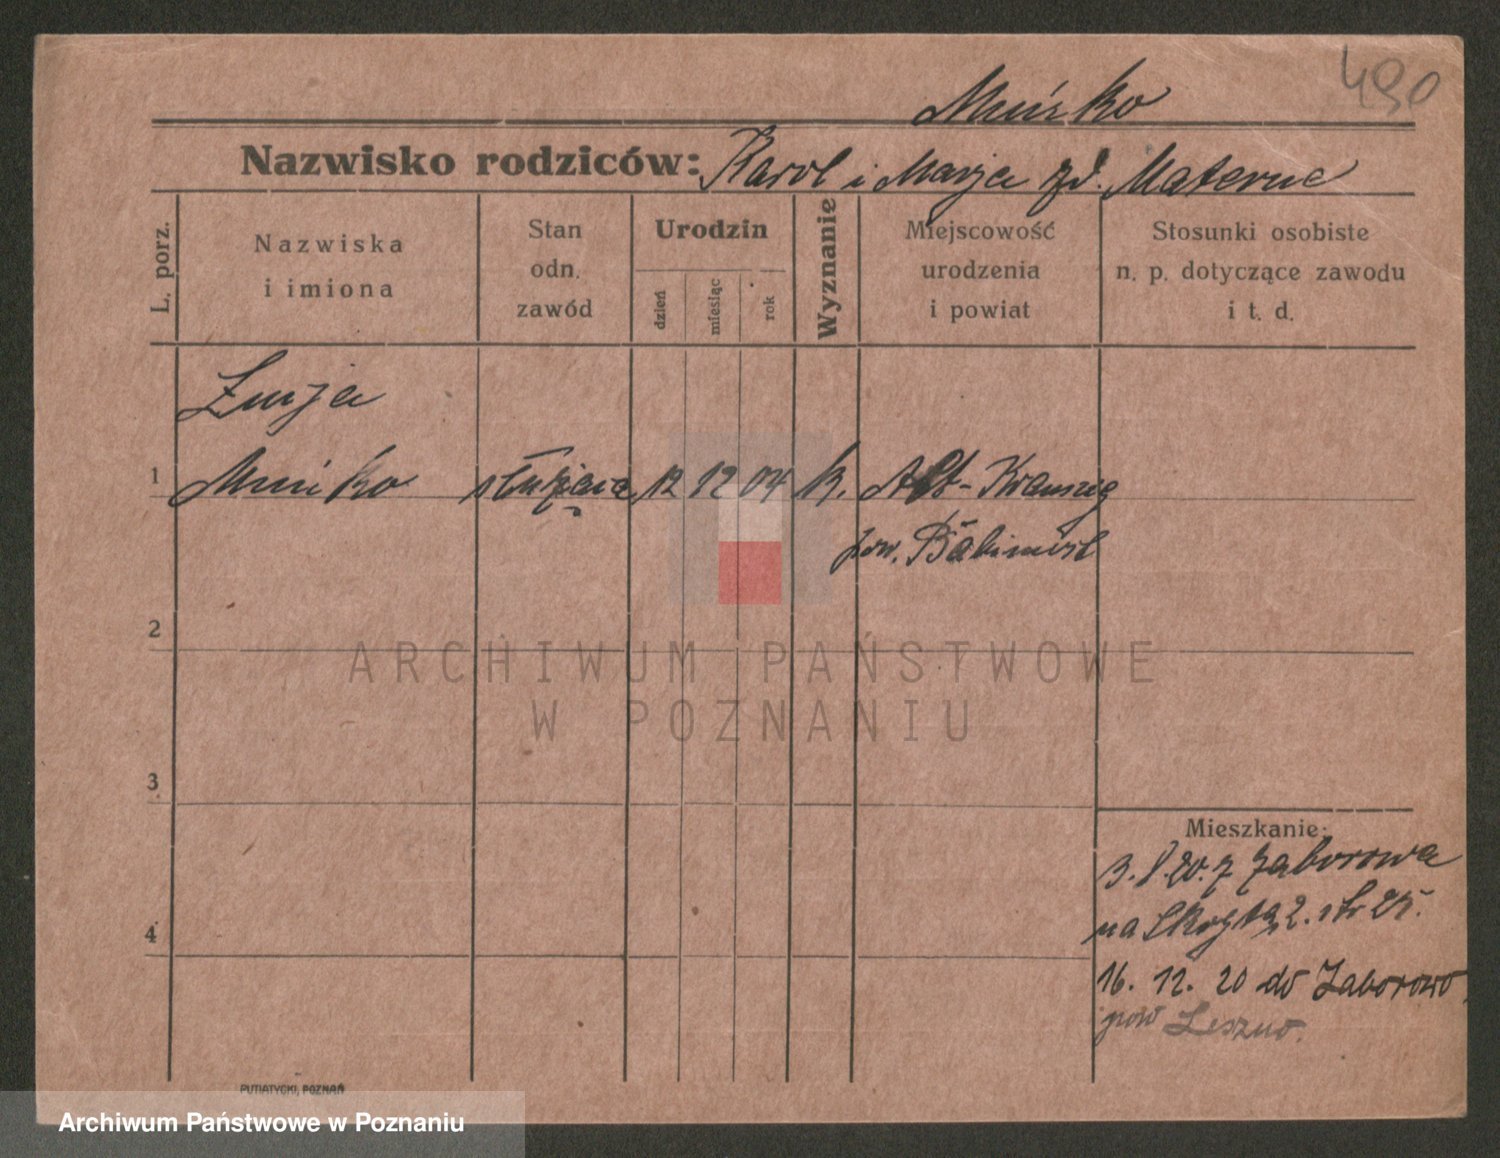 490
Muśko
Nazwisko rodziców: Karol i Marja zd. Materne
L. porz.
Nazwiska
i imiona
Stan
odn.
zawód
Urodzin
dzień
miesiąc
rok
Wyznanie
Miejscowość
urodzenia
i powiat
Stosunki osobiste
n. p. dotyczące zawodu
i t. d.
1
Muśko
służąca 12 12 04 k. Alt-
pow. Babimost
2
ARCHIWUM PAŃSTWOWE
W POZNANIU
3
Mieszkanie:
3. 8. 20. z Zaborowa
na 2. str 25.
4
16. 12. 20 do Zaborowo
pow Leszno.
PUTIATYCKI, POZNAŃ
Archiwum Państwowe w Poznaniu